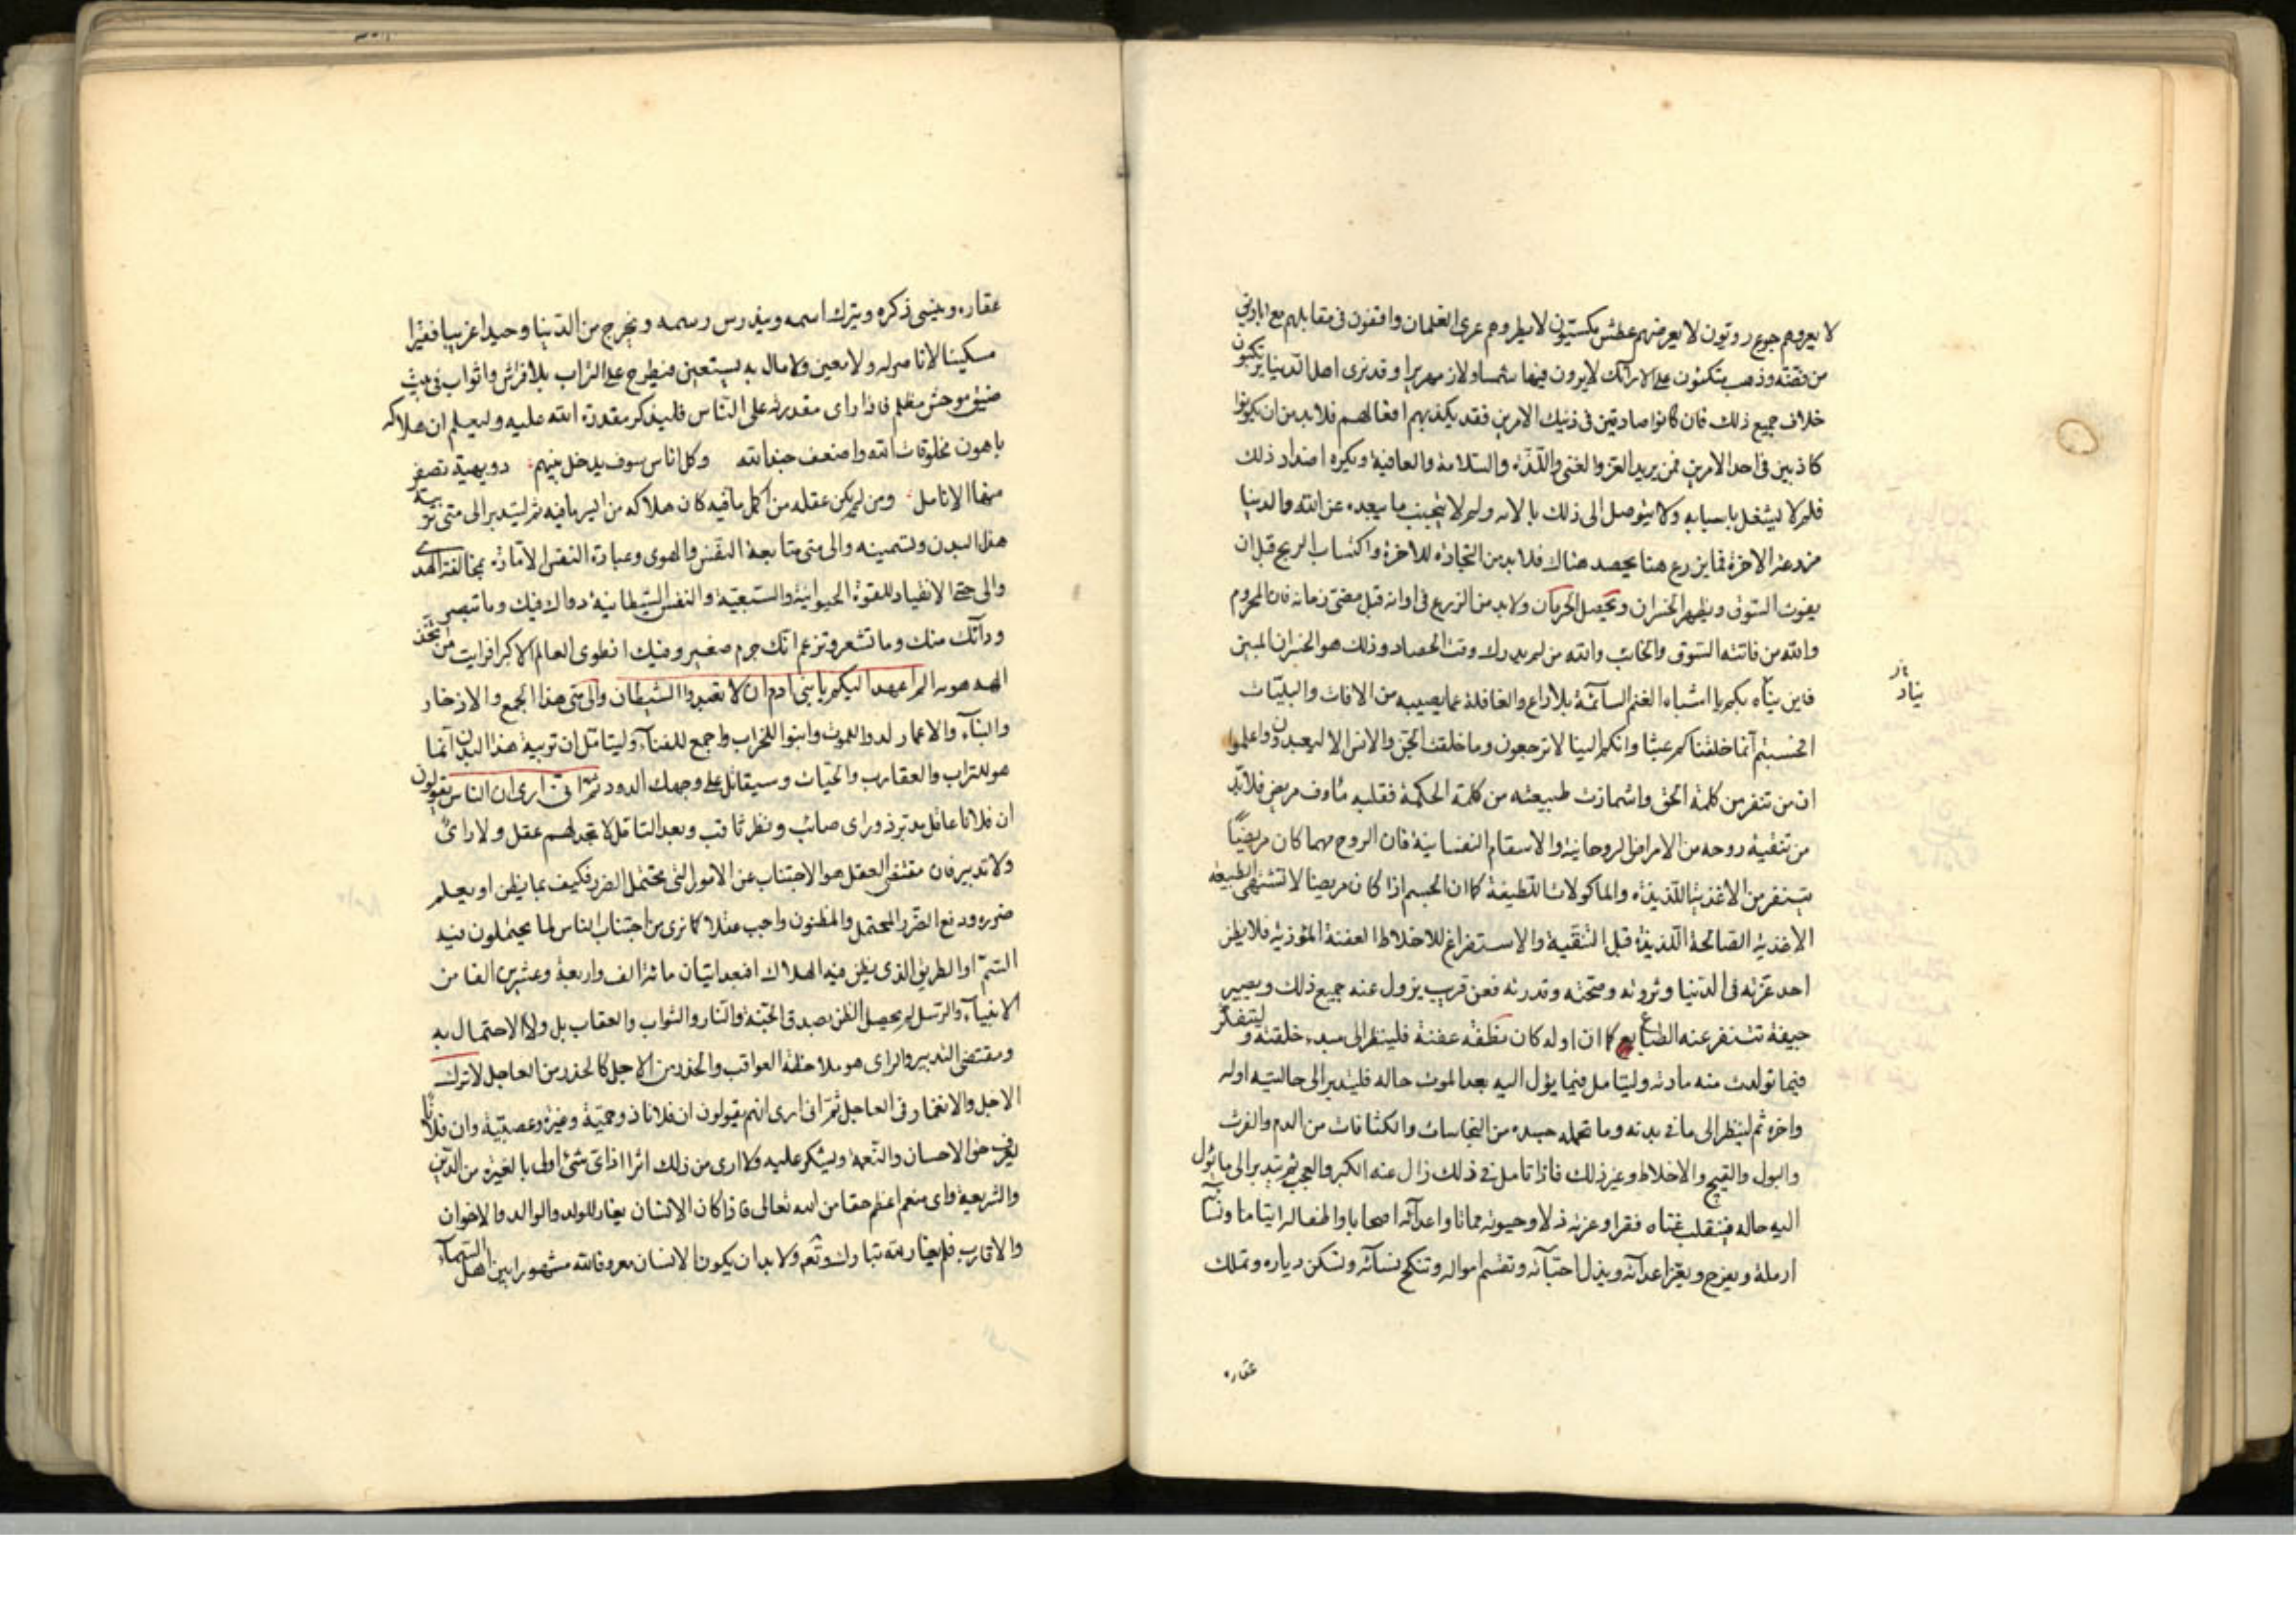 لا يعروهم جوع روتون لا يعرضهم عطش مكستون لا يطروهم عرى الغلمان واقفون فى مقابلهم مع اباريق
من فضة وذهب يتكئون على الارائك لا يرون فيها شمسا ولا زمهريرا وقد نرى اهل الدنيا يرتكبون
خلاف جميع ذلك فان كانوا صادقين فى ذينك الامرين فقد يكذبهم افعالهم فلا بد من ان يكونوا
كاذبين فى احد الامرين فمن يريد العز والغنى واللذة والسلامة والعافية ويكره اضداد ذلك
فلم لا يشغل باسبابه ولا يتوصل الى ذلك بالاته ولم لا يتجنب ما يبعده عن الله والدنيا
مزرعة الاخرة فما يزرع هنا يحصد هناك فلا بد من التجارة للاخرة واكتساب الربح قبل ان
يفوت السوق ويظهر الخسران ويحصل الحرمان ولا بد من الزرع فى اوانه قبل مضى زمانه فان المحروم
والله من فاتته السوق والخائب والله من لم يدرك وقت الحصاد وذلك هو الخسران المبين
فاين يتاه بكم يا اشباه الغنم السائمة بلا راع والغافلة عما يصيبه من الافات والبليات
افحسبتم انما خلقناكم عبثا وانكم الينا لا ترجعون وما خلقت الجن والانس الا ليعبدون واعلموا
ان من تنفر من كلمة الحق واشمازت طبيعته من كلمة الحكمة فقلبه مأوف مريض فلا بد
من تنقية روحه من الامراض الروحانية والاسقام النفسانية فان الروح مهما كان مريضا
يتنفر من الاغذية اللذيذة والماكولات اللطيفة كما ان الجسم اذا كان مريضا لا تشتهى الطبيعة
الاغذية الصالحة اللذيذة قبل التنقية والاستفراغ للاخلاط العفنة المؤذية فلا يظن
احد عزته فى الدنيا وثروته وصحته وقدرته فعن قريب يزول عنه جميع ذلك ويصير
جيفة تتنفر عنه الطبايع كما ان اوله كان نطفة عفنة فلينظر الى مبدء خلقته وليتفكر
فيما تولدت منه مادته وليتامل فيما يؤل اليه بعد الموت حاله فليتدبر الى حالتيه اوله
واخره ثم لينظر الى ما فى بدنه وما تحمله جسده من النجاسات والكثافات من الدم والفرث
والبول والقيح والاخلاط وغير ذلك فاذا تامل فى ذلك زال عنه الكبر والعجب ثم يتدبر الى ما يؤل
اليه حاله فينقلب غناه فقرا وعزته ذلا وحيوته مماتا واعدائه اصحابا واطفاله ايتاما ونسائه
ارملة ويفرح ويعز اعدائه ويذل احبائه وتقسم امواله وتنكح نسائه وتسكن دياره وتملك
عقاره
يتاه
عقاره وينسى ذكره ويترك اسمه ويندرس رسمه ويخرج من الدنيا وحيدا غريبا فقيرا
مسكينا لا ناصر له ولا معين ولا مال به يستعين فيطرح على التراب بلا فراش واثواب فى بيت
ضيق موحش مظلم فاذا راى مقدرته على الناس فليذكر مقدرة الله عليه وليعلم ان هلاكه
باهون مخلوقات الله واضعف جند الله وكل اناس سوف يدخل بينهم دويهية تصفر
منها الانامل ومن لم يكن عقله من اكمل ما فيه كان هلاكه من ايسر ما فيه ثم ليتدبر الى متى تربية
هذا البدن وتسمينه والى متى متابعة النفس والهوى وعبادة النفس الامارة بمخالفة الهدى
والى متى الانقياد للقوة الحيوانية والسبعية والنفس الشيطانية دواك فيك وما تبصر
ودائك منك وما تشعر وتزعم انك جرم صغير وفيك انطوى العالم الاكبر افرايت من اتخذ
الهه هويه الم اعهد اليكم يا بنى ادم ان لا تعبدوا الشيطان والى متى هذا الجمع والادخار
والبناء والاعمار لدوا للموت وابنوا للخراب واجمع للفناء وليتامل ان تربية هذا البدن انما
هو للتراب والعقارب والحيات وسيقاتل على وجهك الدود ثم انى ارى ان الناس يقولون
ان فلانا عاقل مدبر ذو راى صائب ونظر ثاقب وبعد التامل لا تجد لهم عقل ولا راى
ولا تدبير فان مقتضى العقل هو الاجتناب عن الامور التى يحتمل الضرر فكيف بما يظن او يعلم
ضرره ودفع الضرر المحتمل والمظنون واجب عقلا كما نرى من اجتناب الناس لما يحتملون فيه
السم او الطريق الذى يظن فيه الهلاك افبعد اتيان مائة الف واربعة وعشرين الفا من
الانبياء والرسل لم يحصل الظن بصدق الجنة والنار والثواب والعقاب بل ولا الاحتمال به
ومقتضى التدبير والراى هو ملاحظة العواقب والحذر من الاجل كالحذر من العاجل لا ترك
الاجل والانغمار فى العاجل ثم انى ارى انهم يقولون ان فلانا ذو حمية وغيرة وعصبية وان فلانا
يعرف حق الاحسان والنعمة ويشكر عليه ولا ارى من ذلك اثرا اذ اى شئ اولى بالغيرة من الدين
والشريعة واى منعم اعظم حقا من الله تعالى فاذا كان الانسان يغار للولد والوالد والاخوان
والاقارب فلم يغار لله تبارك وتعالى ولا بد ان يكون الانسان معروفا لله مشهورا بين اهل السماء